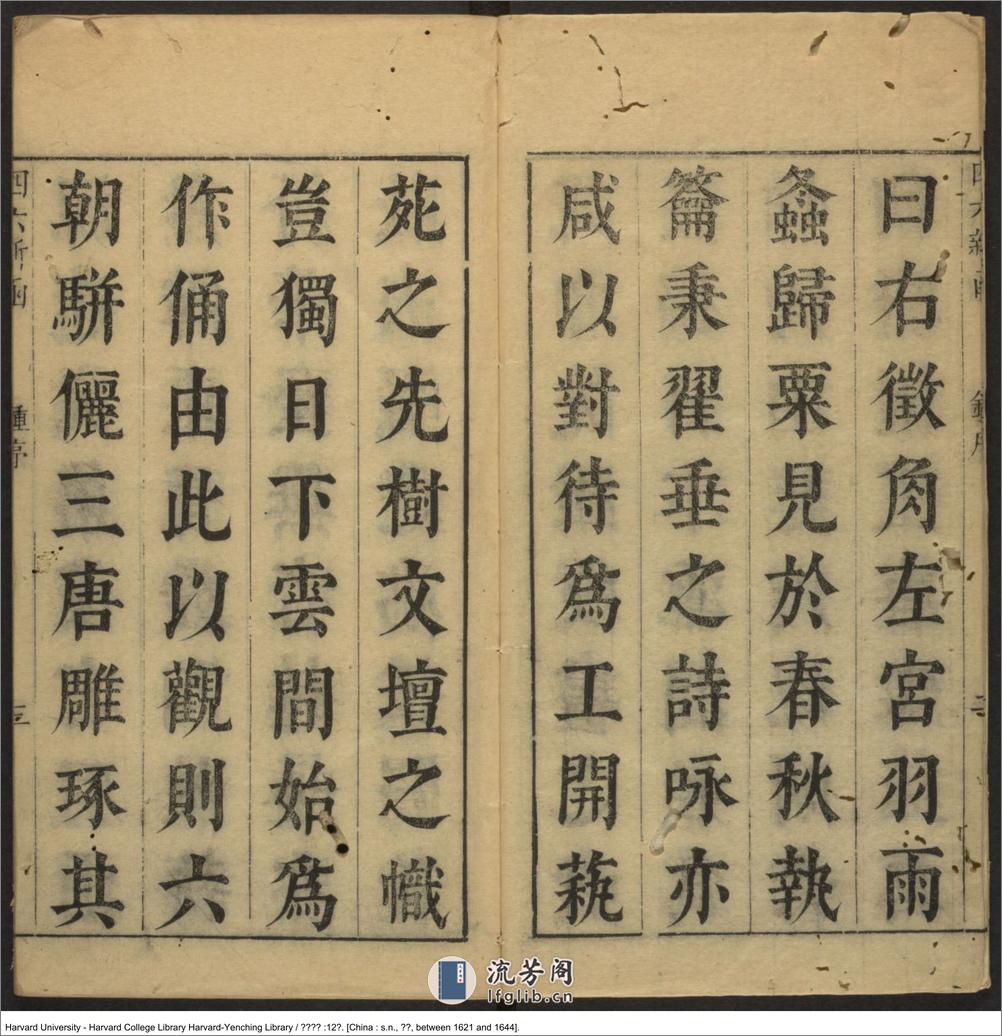 四六新函 鍾序 二
曰右徵角左宮羽雨
螽歸粟見於春秋執
籥秉翟垂之詩咏亦
咸以對待爲工開蓺
苑之先樹文壇之幟
豈獨日下雲間始爲
作俑由此以觀則六
朝駢儷三唐雕琢其
四六新函 鍾序 三
流芳阁
lfglib.cn
Harvard University - Harvard College Library Harvard-Yenching Library / ???? :12?. [China : s.n., ??, between 1621 and 1644].